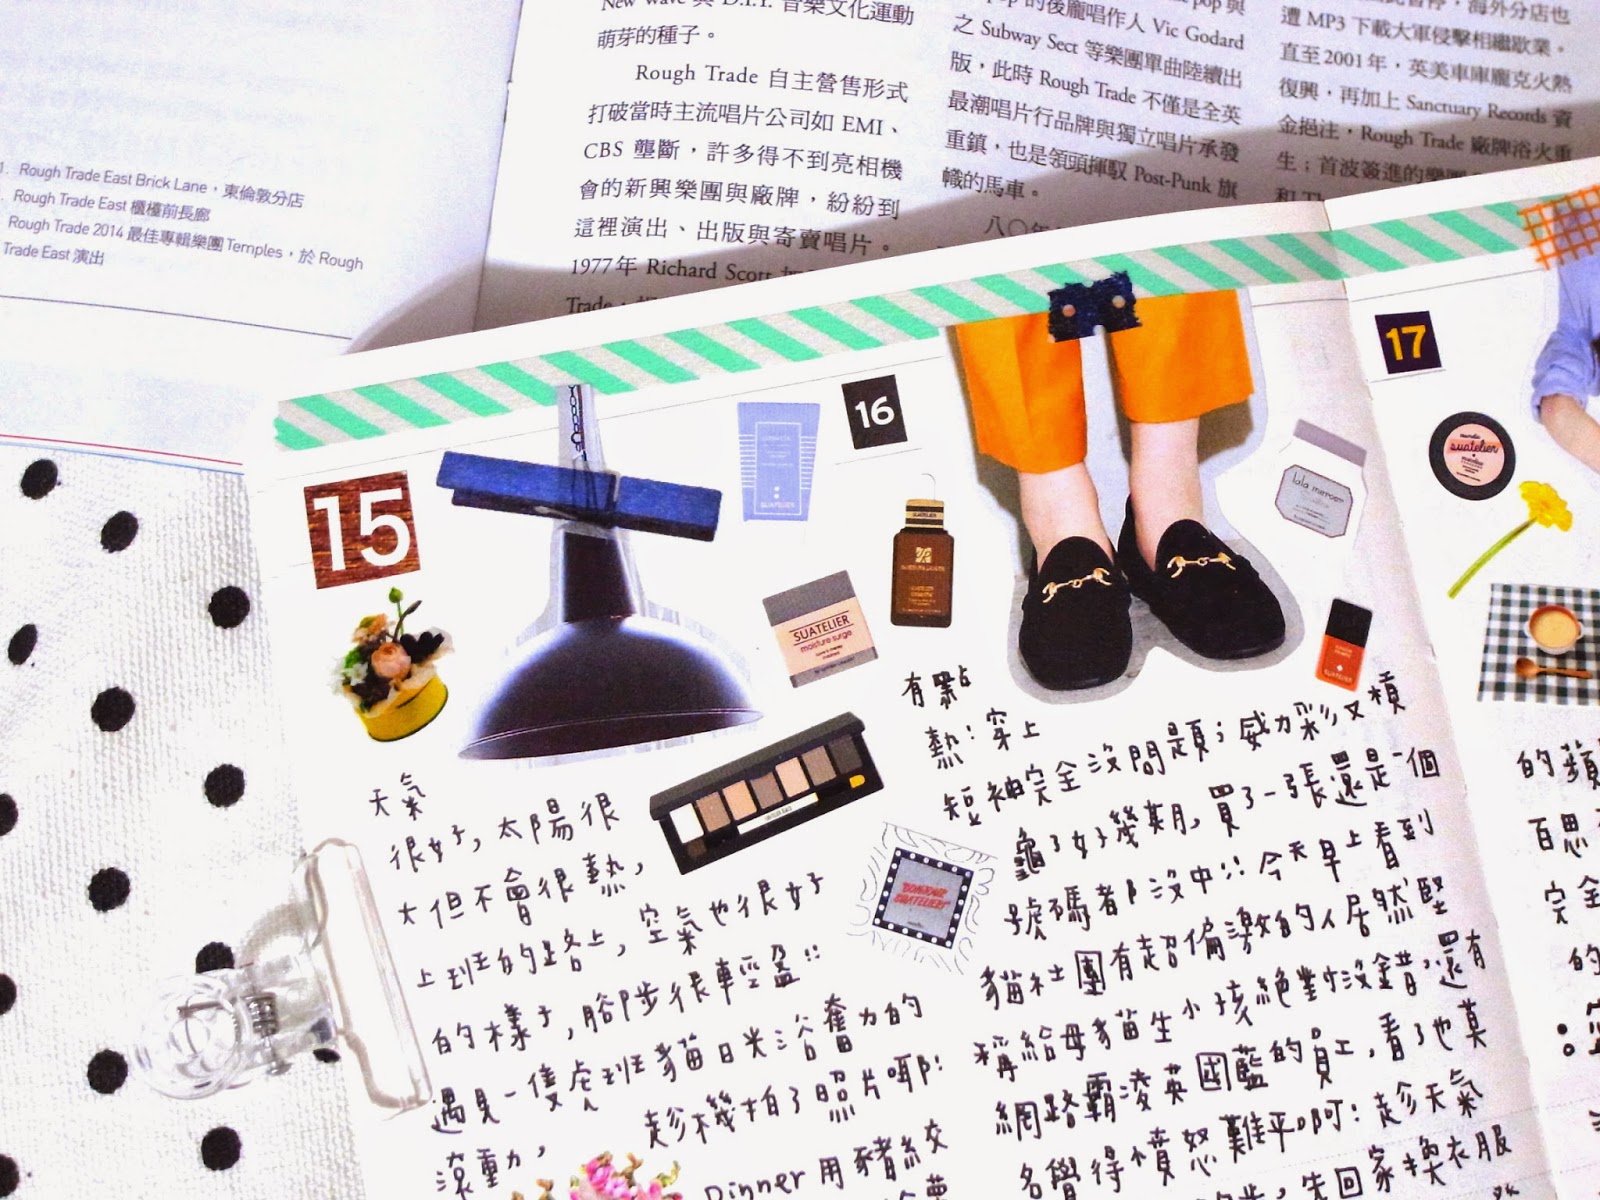 New wave 與 D.I.Y. 音樂文化運動
萌芽的種子。
Rough Trade 自主營售形式
打破當時主流唱片公司如 EMI、
CBS 壟斷，許多得不到亮相機
會的新興樂團與廠牌，紛紛到
這裡演出、出版與寄賣唱片。
1977年 Richard Scott
Trade，
pop 與
的後龐唱作人 Vic Godard
之 Subway Sect 等樂團單曲陸續出
版，此時 Rough Trade 不僅是全英
最潮唱片行品牌與獨立唱片承發
重鎮，也是領頭揮馭 Post-Punk 旗
幟的馬車。
八〇年
，海外分店也
遭 MP3 下載大軍侵擊相繼歇業。
直至 2001 年，英美車庫龐克火熱
復興，再加上 Sanctuary Records 資
金挹注，Rough Trade 廠牌浴火重
生；首波簽進的樂團
和 Th
1. Rough Trade East Brick Lane，東倫敦分店
. Rough Trade East 櫃檯前長廊
Rough Trade 2014 最佳專輯樂團 Temples，於 Rough
Trade East 演出
15
天氣
很好，太陽很
大但不會很熱，
上班的路上，空氣也很好
的樣子，腳步很輕盈
遇見一隻虎斑貓日光浴奮力的
滾動，趁機拍了照片耶
Dinner 用豬絞
SUATELIER
SUATELIER
moisture surge
"BONJOUR
SUATELIER!"
16
有點
熱：穿上
短袖完全沒問題；威力彩又槓
龜了好幾期，買了一張還是一個
號碼都沒中 今天早上看到
貓社團有超偏激的人居然堅
稱給母貓生小孩絕對沒錯，還有
網路霸凌英國藍的員工，看了也莫
名覺得憤怒難平啊：趁天氣
先回家換衣服
SUATELIER
lala mercen
SUATELIER
17
suatelier
的蘋
百思
完全
的